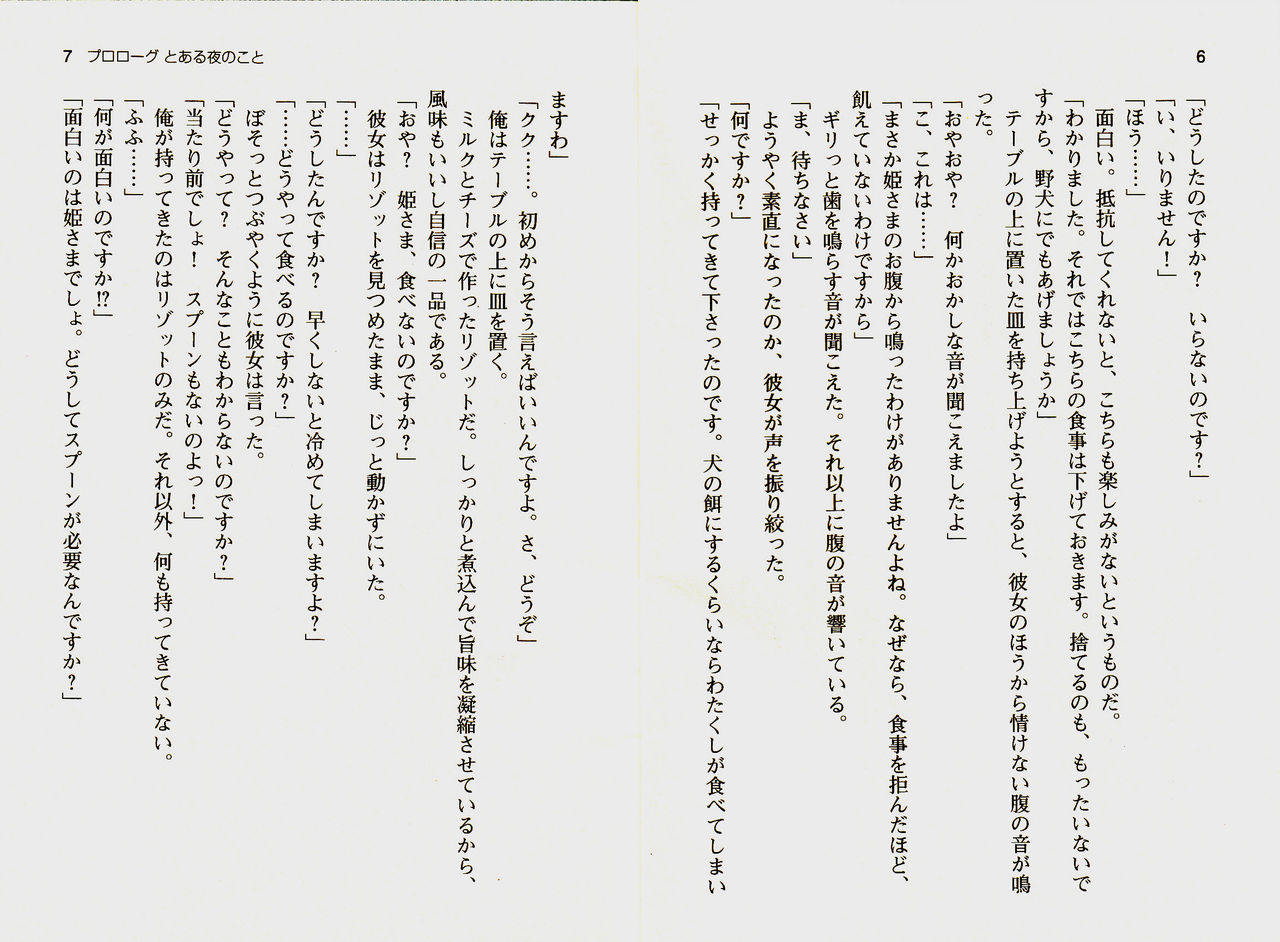 6
「どうしたのですか？　いらないのです？」
「い、いりません！」
「ほう……」
　面白い。抵抗してくれないと、こちらも楽しみがないというものだ。
「わかりました。それではこちらの食事は下げておきます。捨てるのも、もったいないで
すから、野犬にでもあげましょうか」
　テーブルの上に置いた皿を持ち上げようとすると、彼女のほうから情けない腹の音が鳴
った。
「おやおや？　何かおかしな音が聞こえましたよ」
「こ、これは……」
「まさか姫さまのお腹から鳴ったわけがありませんよね。なぜなら、食事を拒んだほど、
飢えていないわけですから」
　ギリっと歯を鳴らす音が聞こえた。それ以上に腹の音が響いている。
「ま、待ちなさい」
　ようやく素直になったのか、彼女が声を振り絞った。
「何ですか？」
「せっかく持ってきて下さったのです。犬の餌にするくらいならわたくしが食べてしまい
7　プロローグ とある夜のこと
ますわ」
「クク……。初めからそう言えばいいんですよ。さ、どうぞ」
　俺はテーブルの上に皿を置く。
　ミルクとチーズで作ったリゾットだ。しっかりと煮込んで旨味を凝縮させているから、
風味もいいし自信の一品である。
「おや？　姫さま、食べないのですか？」
　彼女はリゾットを見つめたまま、じっと動かずにいた。
「……」
「どうしたんですか？　早くしないと冷めてしまいますよ？」
「……どうやって食べるのですか？」
　ぼそっとつぶやくように彼女は言った。
「どうやって？　そんなこともわからないのですか？」
「当たり前でしょ！　スプーンもないのよっ！」
　俺が持ってきたのはリゾットのみだ。それ以外、何も持ってきていない。
「ふふ……」
「何が面白いのですか!?」
「面白いのは姫さまでしょ。どうしてスプーンが必要なんですか？」